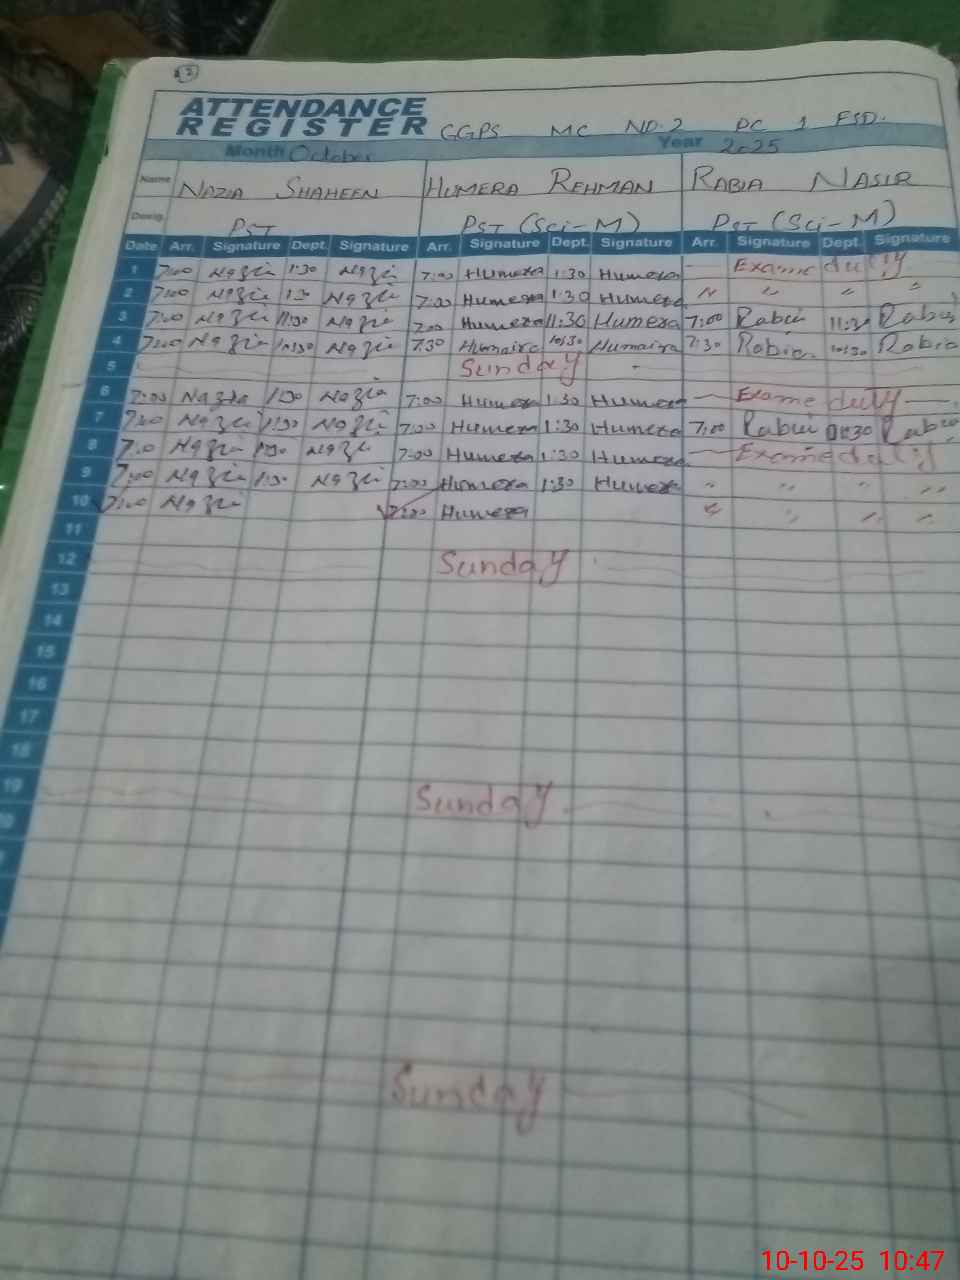 2
ATTENDANCE
REGISTER GGPS MC NO.2 DC 1 FSD.
Month October Year 2025
Name NAZIA SHAHEEN HUMERA REHMAN RABIA NASIR
Desig. PST PST (Sci-M) PST (Sci-M)
Date Arr. Signature Dept. Signature Arr. Signature Dept. Signature Arr. Signature Dept. Signature
1 7:00 Nazia 1:30 Nazia 7:00 Humera 1:30 Humera — Exame duty
2 7:00 Nazia 1:30 Nazia 7:00 Humera 1:30 Humera " " " "
3 7:00 Nazia 11:30 Nazia 7:00 Humera 11:30 Humera 7:00 Rabia 11:30 Rabia
4 7:30 Nazia 10:30 Nazia 7:30 Humaira 10:30 Humaira 7:30 Rabia 10:30 Rabia
5 Sunday
6 7:00 Nazia 1:30 Nazia 7:00 Humera 1:30 Humera — Exame duty —
7 7:00 Nazia 1:30 Nazia 7:00 Humera 1:30 Humera 7:00 Rabia Rabia
8 7:00 Nazia 1:30 Nazia 7:00 Humera 1:30 Humera — Exame duty
9 7:00 Nazia 1:30 Nazia 7:00 Humera 1:30 Humera " " " "
10 7:00 Nazia 7:00 Humera " " " "
11
12 Sunday
13
14
15
16
17
18
19 Sunday
Sunday
10-10-25 10:47